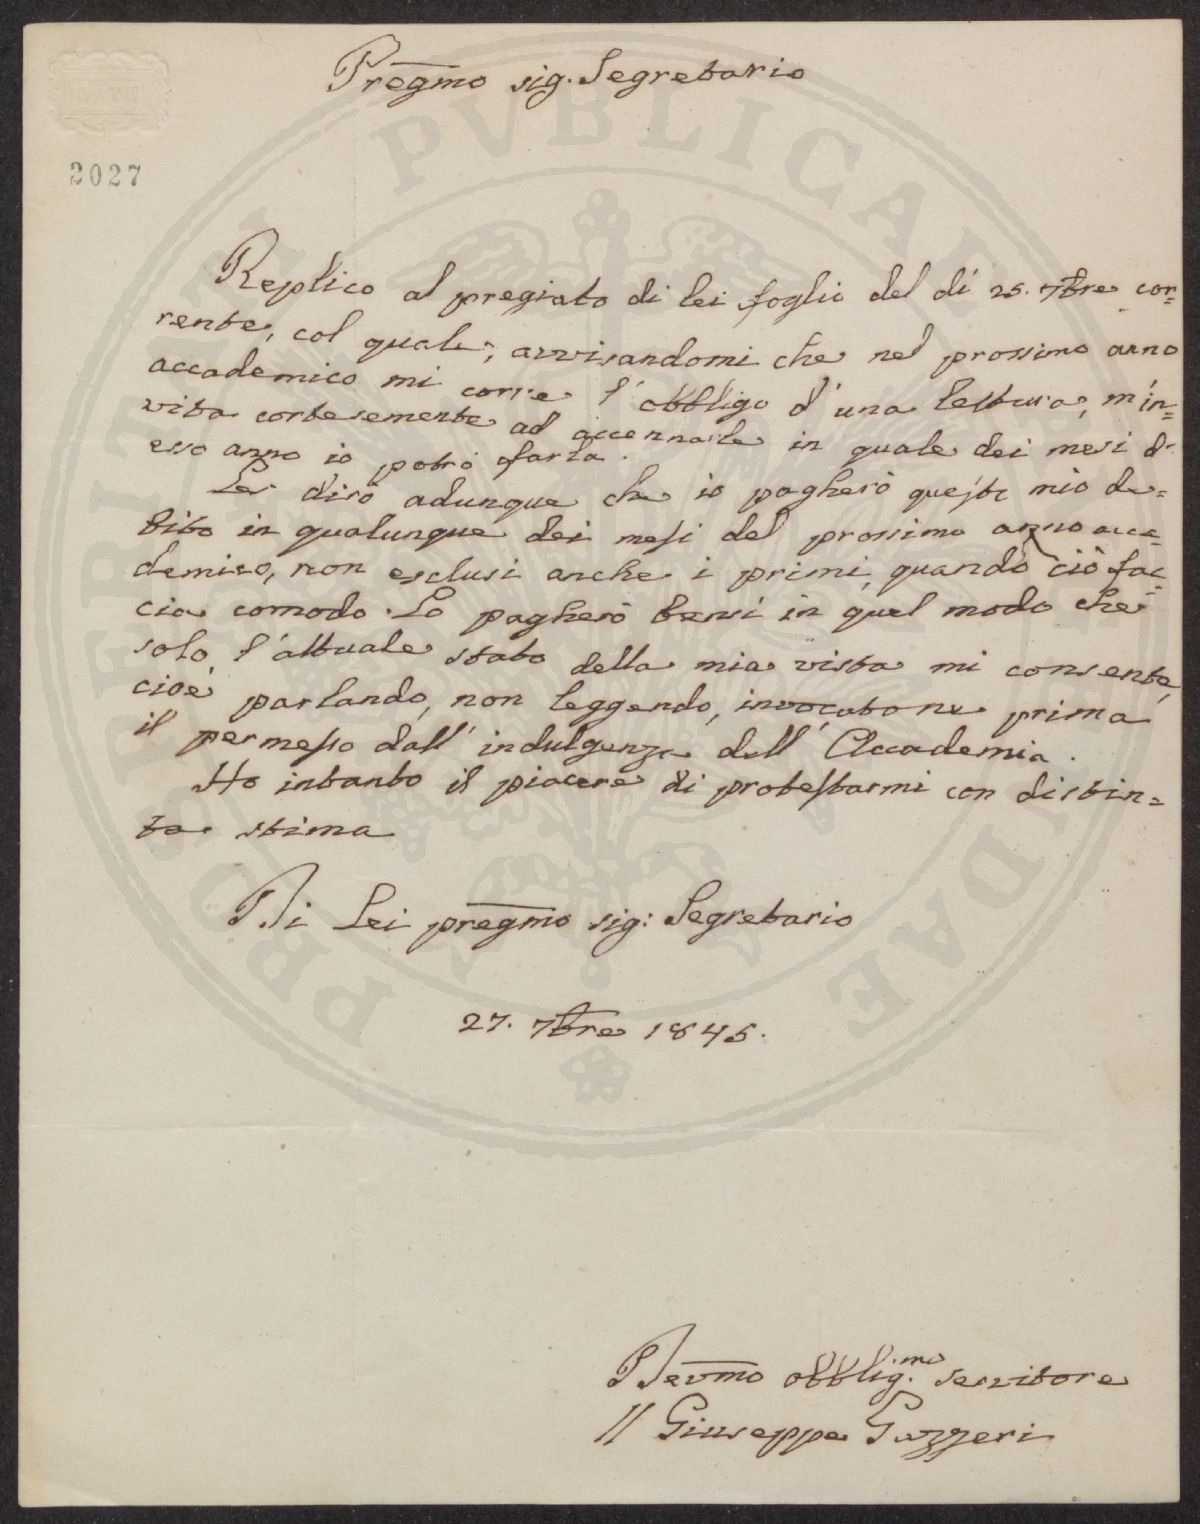 Pregmo sig. Segretario
2027
Replico al pregiato di lei foglio del dì 25. 7bre cor=
rente, col quale, avvisandomi che nel prossimo anno
accademico mi corre l'obbligo d'una lettura, m'in=
vita cortesemente ad accennarle in quale dei mesi d'
esso anno io potrò farla.
Le dirò adunque che io pagherò questo mio de=
bito in qualunque dei mesi del prossimo anno acca=
demico, non esclusi anche i primi, quando ciò fac=
cia comodo. Lo pagherò bensì in quel modo che
solo l'attuale stato della mia vista mi consente,
cioè parlando, non leggendo, invocatone prima
il permesso dall'indulgenza dell'Accademia.
Ho intanto il piacere di protestarmi con distin=
ta stima
Di Lei pregmo sig: Segretario
27. 7bre 1845.
Devmo obblig.mo servitore
Giuseppe Gazzeri
PROSPERITATI PVBLICAE AVGENDAE